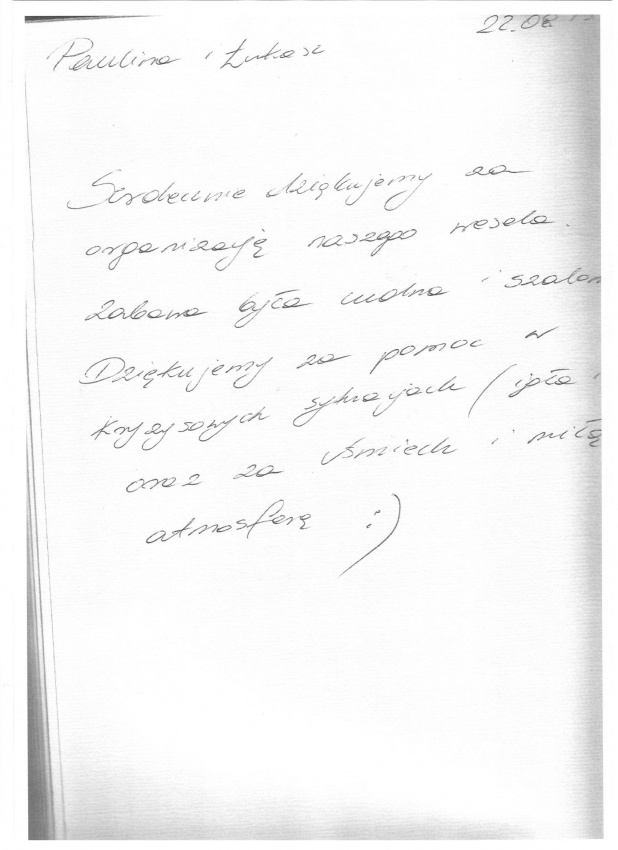 22.08
Paulina i Łukasz
Serdecznie dziękujemy za
organizację naszego wesela.
Zabawa była cudna i szalon
Dziękujemy za pomoc w
kryzysowych sytuacjach (igła i
oraz za uśmiech i miłą
atmosferę :)